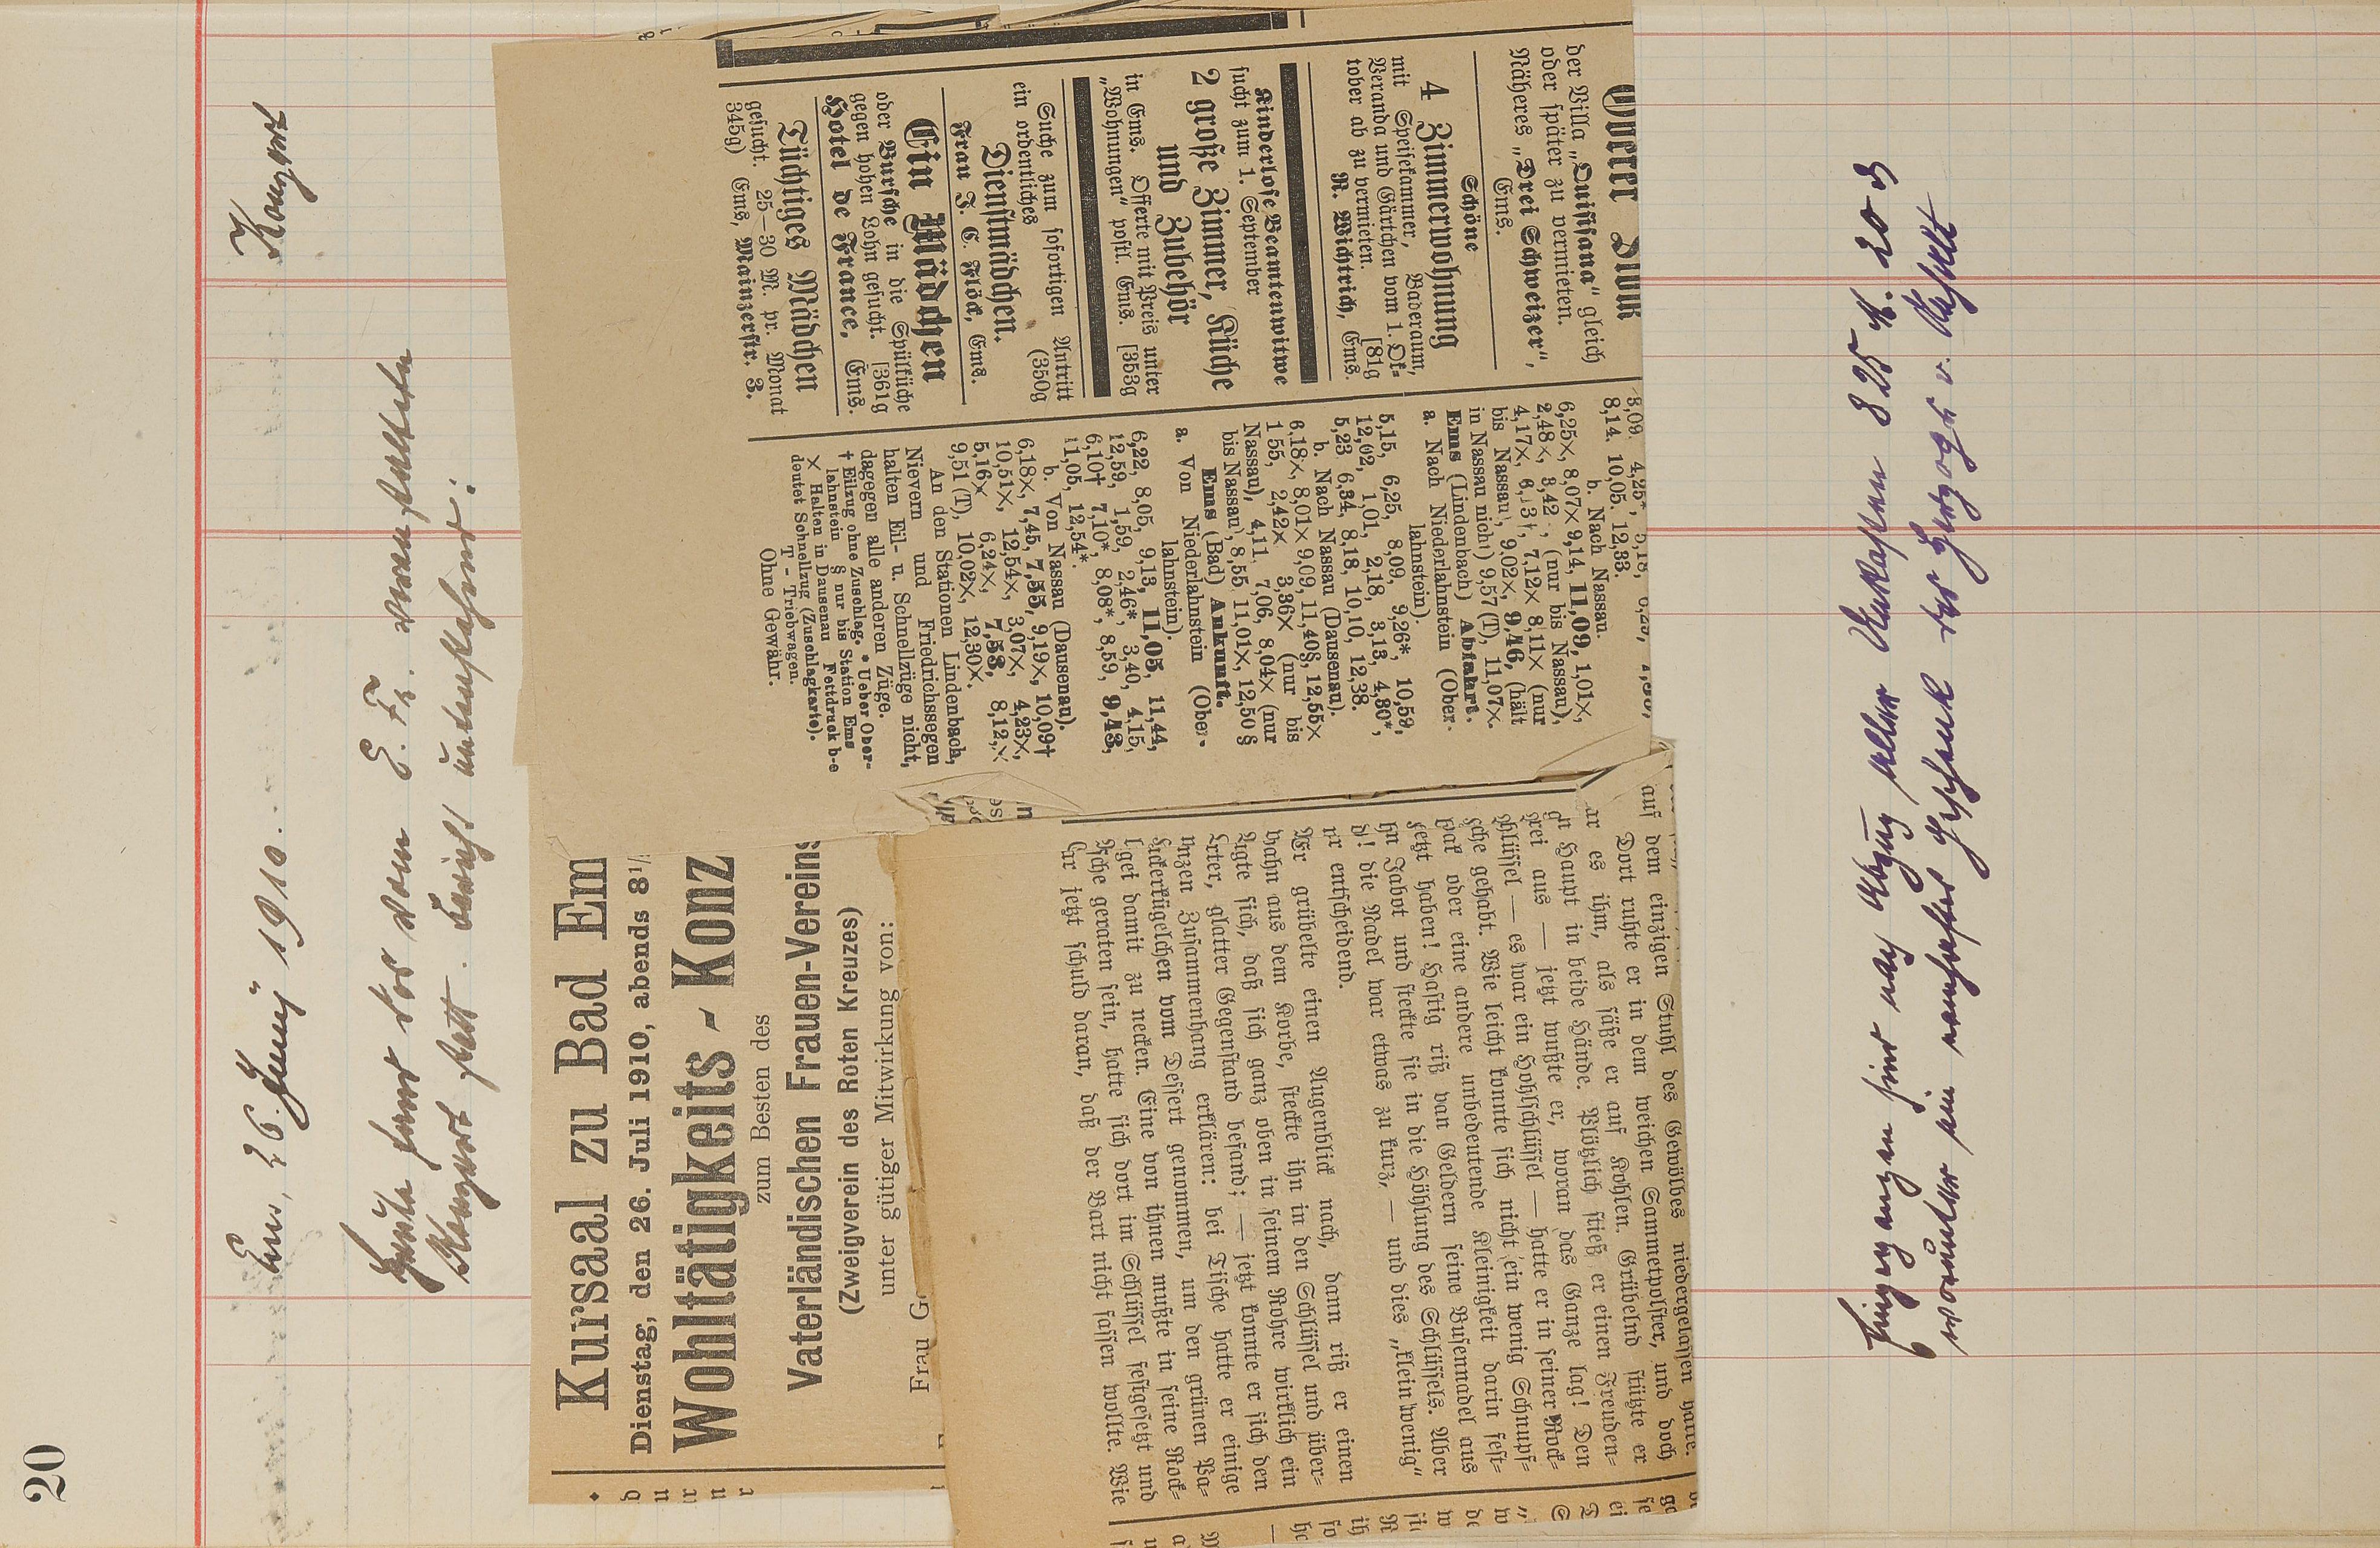 20
Ems, 26. Juny 1910.
Konzert
Heute fand das vom V. Fr. veranstaltete
Konzert statt. Bericht untenstehend:
Kursaal zu Bad Em
Dienstag, den 26. Juli 1910, abends 8½
Wohltätigkeits-Konz
zum Besten des
Vaterländischen Frauen-Vereins
(Zweigverein des Roten Kreuzes)
unter gütiger Mitwirkung von:
Frau G
der Villa „Quisisana“ gleich
oder später zu vermieten.
Näheres „Drei Schweizer“,
Ems.
Schöne
4 Zimmerwohnung
mit Speisekammer, Baderaum,
Veranda und Gärtchen vom 1. Ok-
tober ab zu vermieten. [81g
R. Wichtrich, Ems.
Kinderlose Beamtenwitwe
sucht zum 1. September
2 große Zimmer, Küche
und Zubehör
in Ems. Offerte mit Preis unter
„Wohnungen“ postl. Ems. [353g
Suche zum sofortigen Antritt
ein ordentliches (350g
Dienstmädchen.
Frau J. C. Flöck, Ems.
Ein Mädchen
oder Bursche in die Spülküche
gegen hohen Lohn gesucht. [361g
Hotel de France, Ems.
Tüchtiges Mädchen
gesucht. 25—30 M. pr. Monat
345g) Ems, Mainzerstr. 3.
8,14. 10,05. 12,33.
b. Nach Nassau.
6,25×, 8,07× 9,14, 11,09, 1,01×,
2,48×, 3,42, (nur bis Nassau),
4,17×, 6,13†, 7,12× 8,11× (nur
bis Nassau), 9,02×, 9,46, (hält
in Nassau nicht) 9,57 (T), 11,07×.
Ems (Lindenbach) Abfahrt.
a. Nach Niederlahnstein (Ober-
lahnstein).
5,15, 6,25, 8,09, 9,26*, 10,59,
12,02, 1,01, 2,18, 3,13, 4,30*,
5,23 6,34, 8,18, 10,10, 12,38.
b. Nach Nassau (Dausenau).
6,18×, 8,01× 9,09, 11,40§, 12,55×
1 55, 2,42×, 3,36× (nur bis
Nassau), 4,11, 7,06, 8,04× (nur
bis Nassau), 8,55, 11,01×, 12,50 §
Ems (Bad) Ankunft.
a. Von Niederlahnstein (Ober-
lahnstein).
6,22, 8,05, 9,13, 11,05, 11,44,
12,59, 1,59, 2,46*, 3,40, 4,15,
6,10† 7,10*, 8,08*, 8,59, 9,43,
11,05, 12,54*.
b. Von Nassau (Dausenau).
6,18×, 7,45, 7,55, 9,19×, 10,09†
10,51×, 12,54×, 3,07×, 4,23×,
5,16×, 6,24×, 7,53, 8,12,×
9,51 (T), 10,02×, 12,30×.
An den Stationen Lindenbach,
Nievern und Friedrichssegen
halten Eil- u. Schnellzüge nicht,
dagegen alle anderen Züge.
† Eilzug ohne Zuschlag. * Ueber Ober-
lahnstein § nur bis Station Ems
× Halten in Dausenau Fettdruck b-e
deutet Schnellzug (Zuschlagkarte).
T - Triebwagen.
Ohne Gewähr.
auf dem einzigen Stuhl des Gewölbes niedergelassen hatte.
Dort ruhte er in dem weichen Sammetpolster, und doch
ar es ihm, als säße er auf Kohlen. Grübelnd stützte er
Haupt in beide Hände. Plötzlich stieß er einen Freuden-
rei aus — jetzt wußte er, woran das Ganze lag! Den
hlüssel — es war ein Hohlschlüssel — hatte er in seiner Rock-
che gehabt. Wie leicht konnte sich nicht ein wenig Schnupf-
bak oder eine andere unbedeutende Kleinigkeit darin fest-
setzt haben! Hastig riß van Geldern seine Busennadel aus
Jabot und steckte sie in die Höhlung des Schlüssels. Aber
! die Nadel war etwas zu kurz, — und dies „klein wenig“
r entscheidend.
Er grübelte einen Augenblick nach, dann riß er einen
hahn aus dem Korbe, steckte ihn in den Schlüssel und über-
gte sich, daß sich ganz oben in seinem Rohre wirklich ein
rter, glatter Gegenstand befand; — jetzt konnte er sich den
nzen Zusammenhang erklären: bei Tische hatte er einige
ckerkügelchen vom Dessert genommen, um den grünen Pa-
gei damit zu necken. Eine von ihnen mußte in seine Rock-
sche geraten sein, hatte sich dort im Schlüssel festgesetzt und
ar jetzt schuld daran, daß der Bart nicht fassen wollte. Wie
Eingegangen sind nach Abzug aller Unkosten 825 M. 20 ₰
worunter ein namhaftes Geschenk des Herzogs v. Anhalt